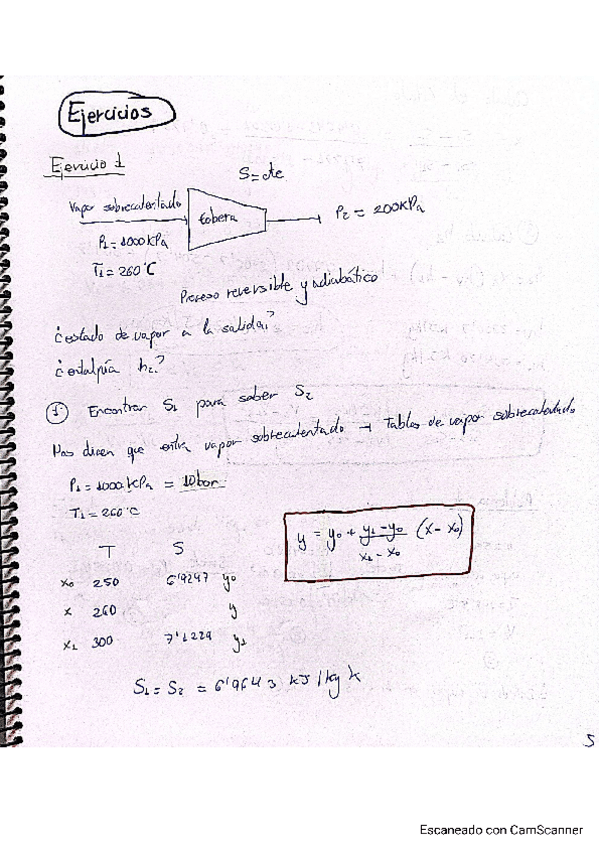 Ejercicios
Ejercicio 1
S=cte
Vapor sobrecalentado
tobera
P2 = 200KPa
P1 = 1000KPa
T1 = 260°C
Proceso reversible y adiabático
¿estado de vapor a la salida?
¿entalpía h2?
1º Encontrar S1 para saber S2
Nos dicen que entra vapor sobrecalentado → Tablas de vapor sobrecalentado
P1 = 1000 KPa = 10bar
T1 = 260°C
y = y0 + y1-y0 / x1-x0 (x-x0)
T S
x0 250 6'9247 y0
x 260 y
x1 300 7'1229 y1
S1 = S2 = 6'9643 KJ/kg K
5
Escaneado con CamScanner